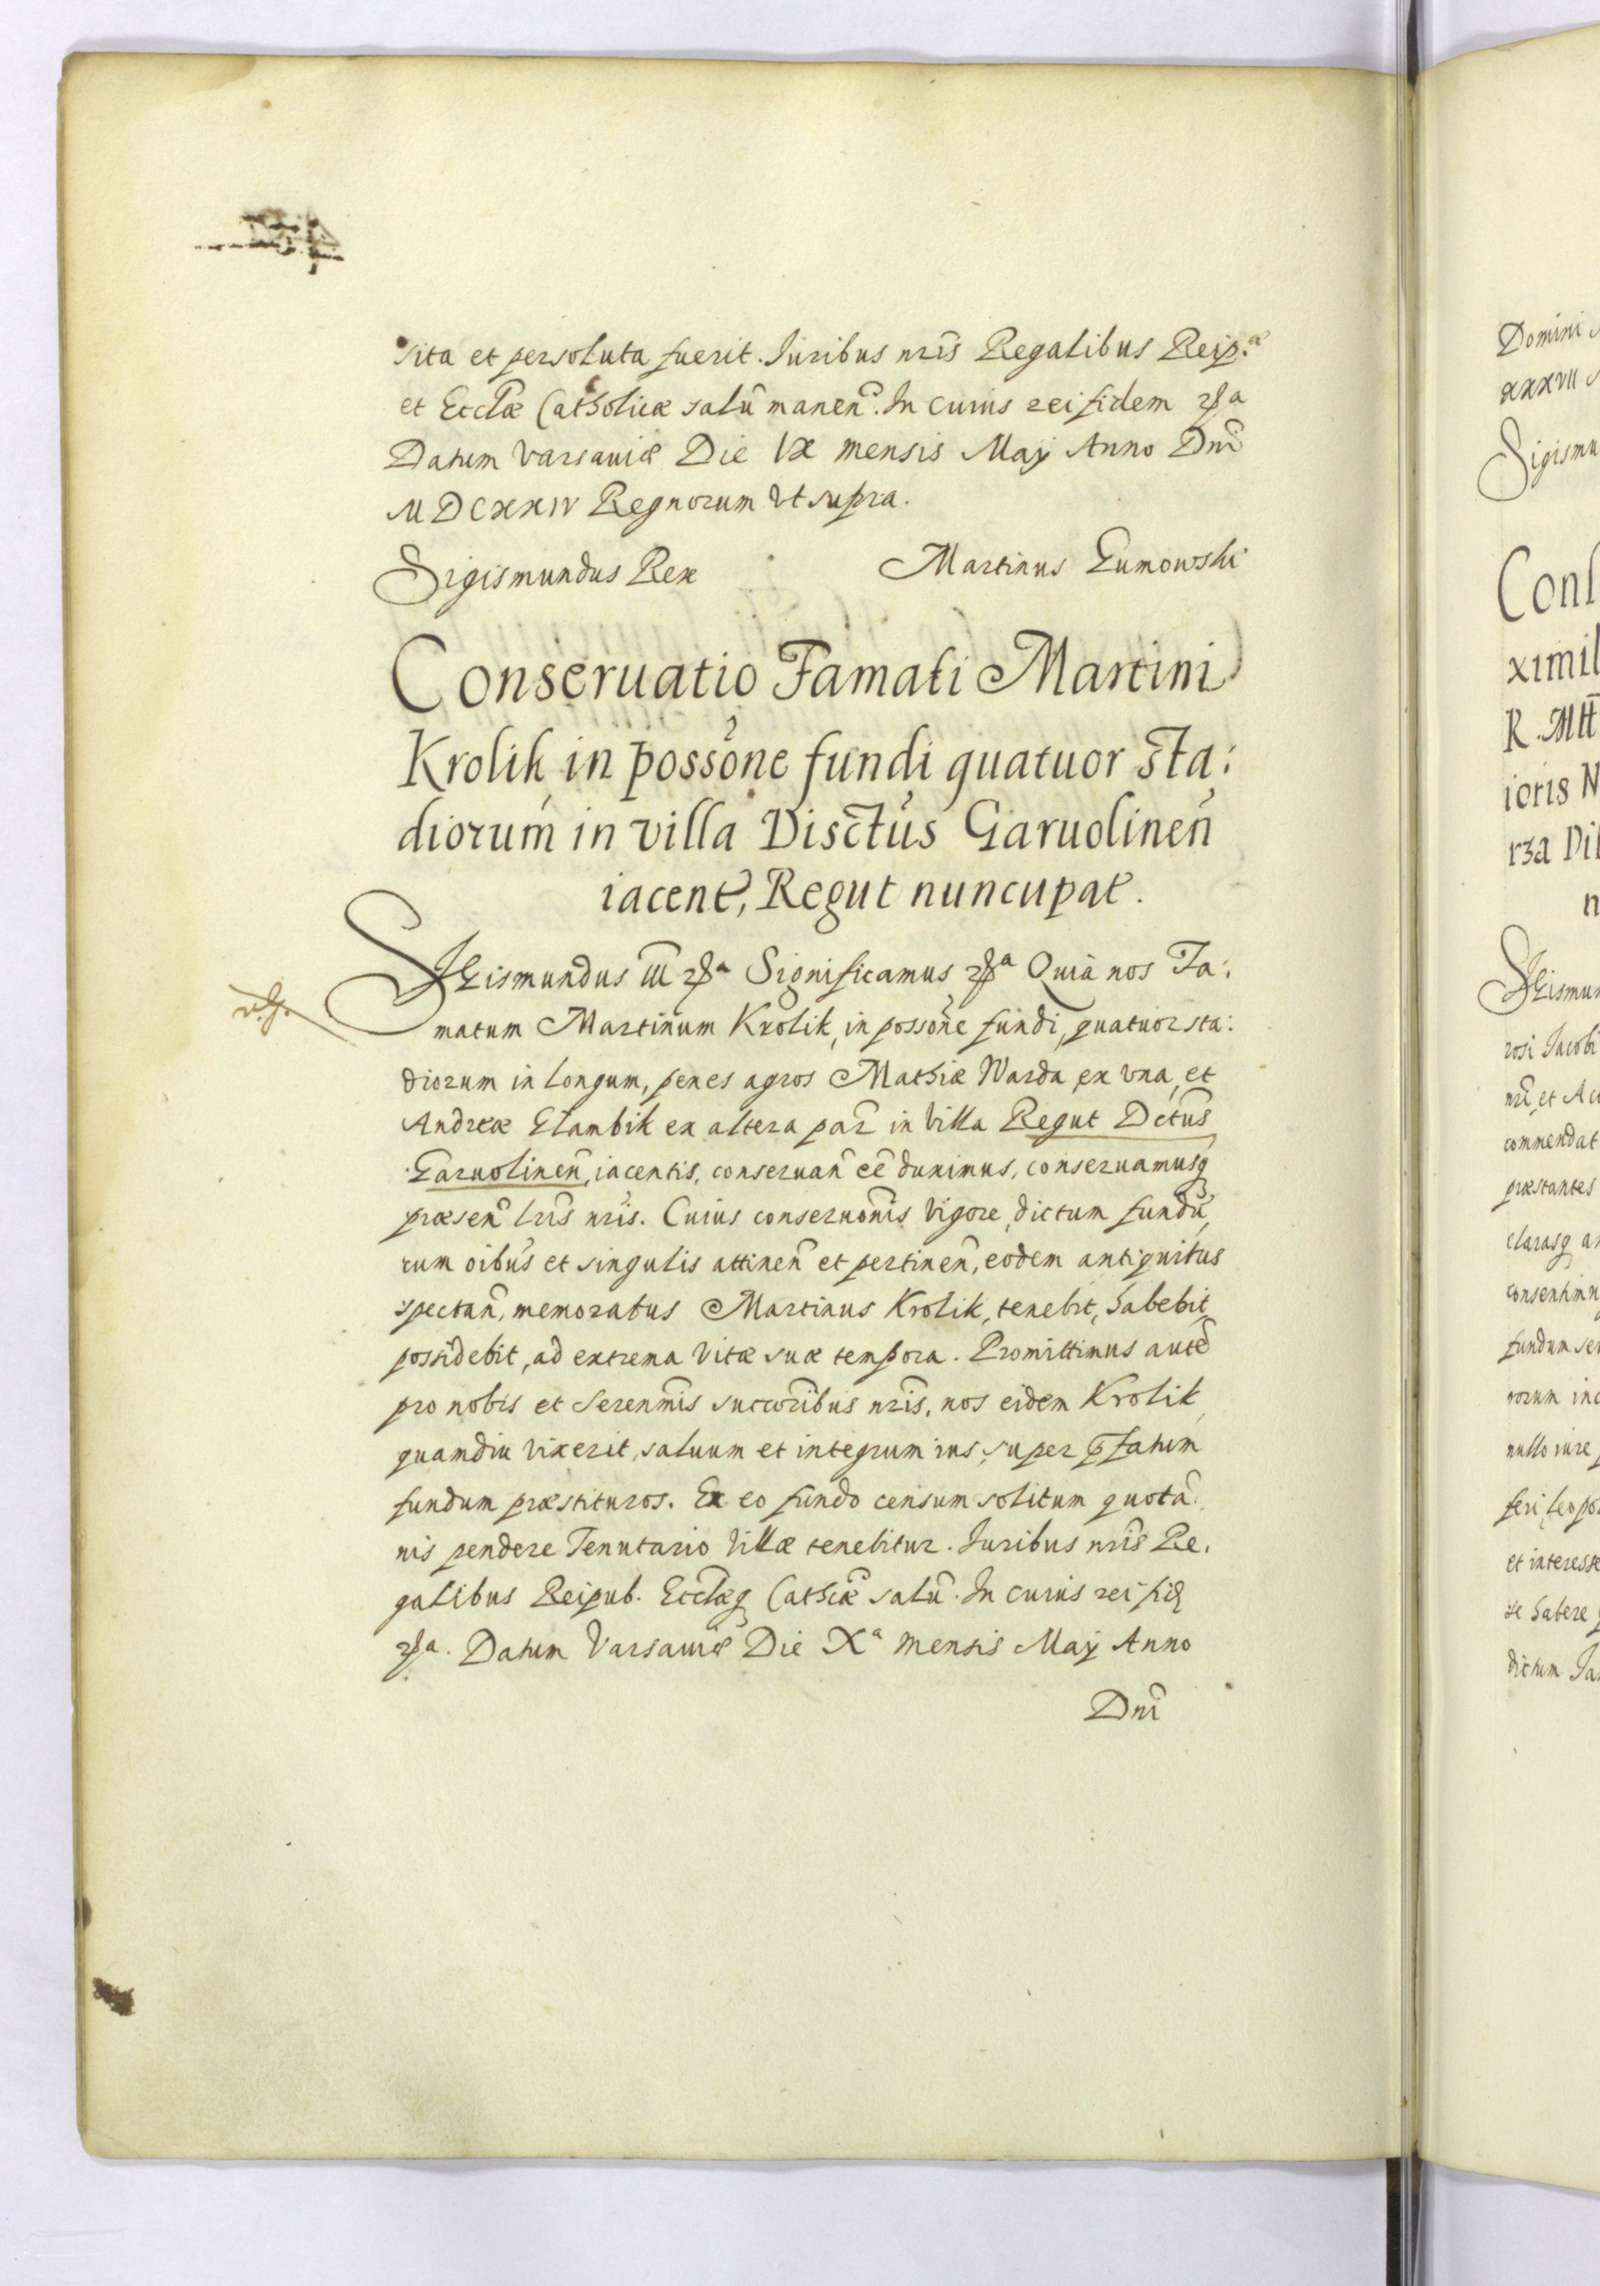 sita et persoluta fuerit. Iuribus nr̃is Regalibus Reip.ᵃᵉ
et Eccl̃æ Catholicæ salũ manen̄. In cuius rei fidem
Datum Varsaviæ Die IX mensis Maÿ Anno Dn̄i
MDCXXIV Regnorum Vt supra.
Sigismundus Rex Martinus
Conseruatio Famati Martini
Krolik in possõne fundi quatuor Sta:
diorum in villa Disctũs Garuolineñ
iacent̃, Regut nuncupat̃.
SIGismundus III Significamus Quia nos Fa:
matum Martinum Krolik, in possõne fundi, quatuor sta:
diorum in longum, penes agros Mathiæ Warda, ex vna, et
Andreæ Glambik ex altera par̃ in Villa Regut Dctũs
Garuolineñ, iacentis, conseruañ eē duximus, conseruamusq
præseñ lr̃is nr̃is. Cuius conseruõnis Vigore, dictum fundũ,
cum oĩbus et singulis attineñ et pertineñ, eodem antiquitus
spectañ, memoratus Martinus Krolik, tenebit, habebit,
possidebit, ad extrema Vitæ suæ tempora. Promittimus autẽ
pro nobis et Serenm̃is succor̃ibus nr̃is, nos eidem Krolik,
quamdiu Vixerit, saluum et integrum ius, super p̃fatum
fundum præstituros. Ex eo fundo censum solitum quotã:
nis pendere Tenutario Villæ tenebitur. Iuribus nr̃is Re:
galibus Reipub. Eccl̃æq Cathcæ̃ salũ. In cuius rei
Datum Varsaviæ Die Xᵃ mensis Maÿ Anno
Dn̄i
Domini
xxxvii
Sigismu
ximil
ioris N
n
SIGismu
rosi Jacobi
commendat
præstantes
clarasq
consentimu
fundum
rorum inc
nullo iure
et interesse
se habere
dictum